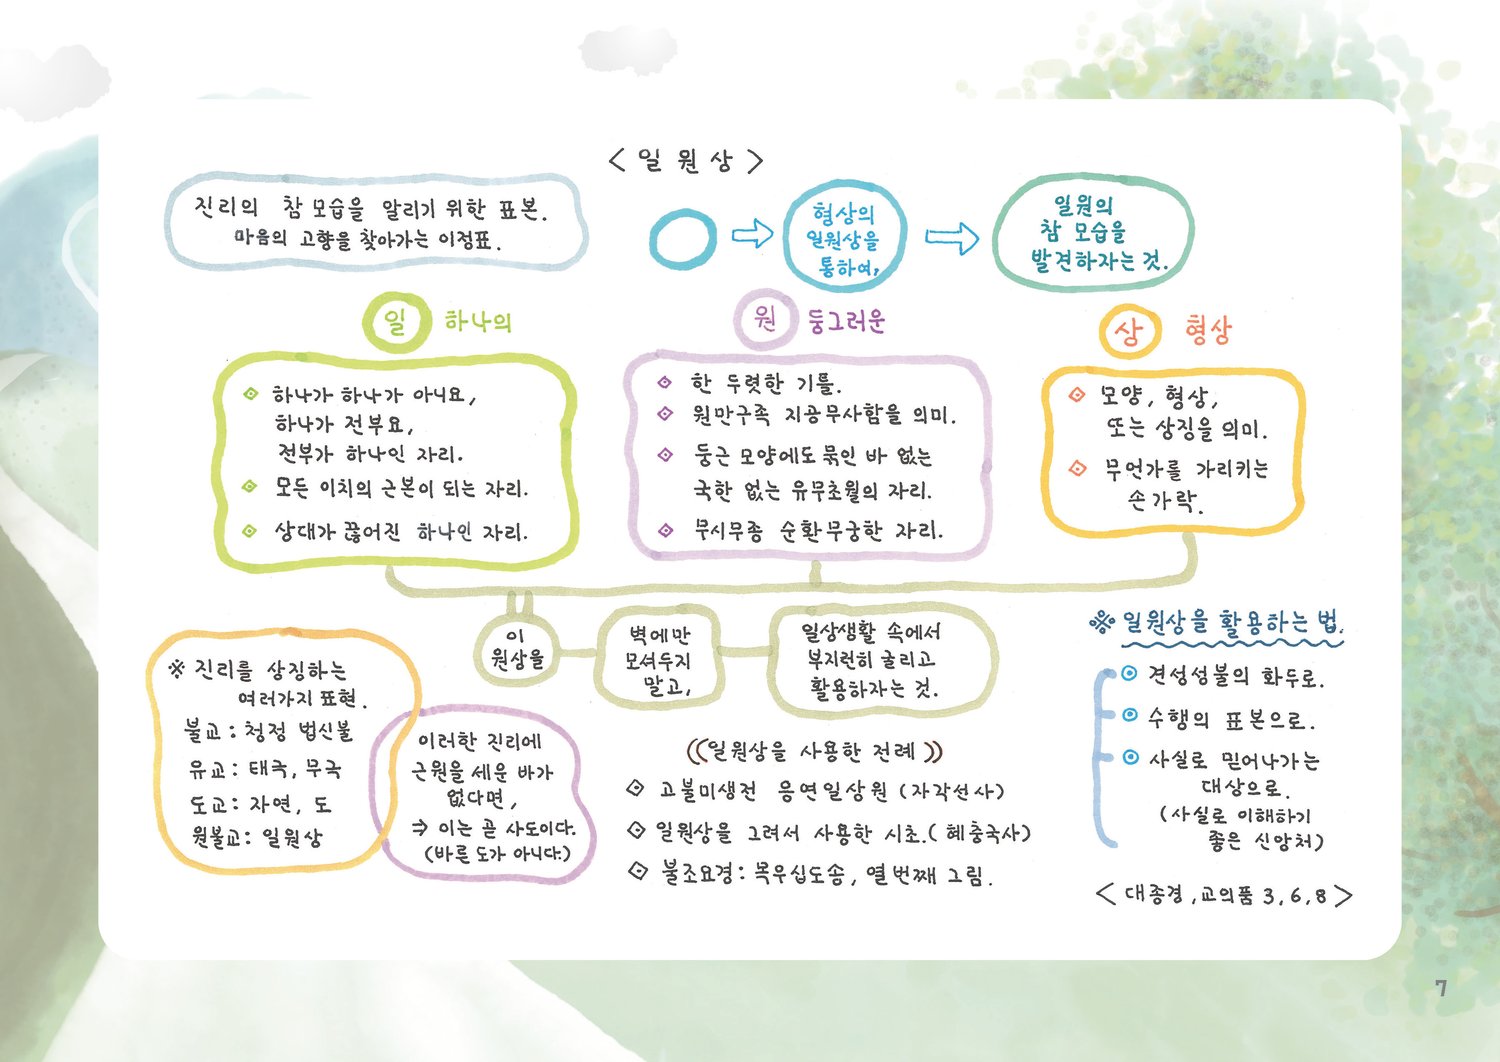 < 일 원 상 >
진리의 참 모습을 알리기 위한 표본.
마음의 고향을 찾아가는 이정표.
형상의
일원상을
통하여,
일원의
참 모습을
발견하자는 것.
일 하나의
하나가 하나가 아니요,
하나가 전부요,
전부가 하나인 자리.
모든 이치의 근본이 되는 자리.
상대가 끊어진 하나인 자리.
원 둥그러운
한 두렷한 기틀.
원만구족 지공무사함을 의미.
둥근 모양에도 묶인 바 없는
국한 없는 유무초월의 자리.
무시무종 순환무궁한 자리.
상 형상
모양, 형상,
또는 상징을 의미.
무언가를 가리키는
손가락.
이
원상을
벽에만
모셔두지
말고,
일상생활 속에서
부지런히 굴리고
활용하자는 것.
※ 진리를 상징하는
여러가지 표현.
불교 : 청정 법신불
유교 : 태극, 무극
도교 : 자연, 도
원불교 : 일원상
이러한 진리에
근원을 세운 바가
없다면,
⇒ 이는 곧 사도이다.
(바른 도가 아니다.)
((일원상을 사용한 전례))
고불미생전 응연일상원 (자각선사)
일원상을 그려서 사용한 시초. (혜충국사)
불조요경 : 목우십도송, 열번째 그림.
※ 일원상을 활용하는 법.
견성성불의 화두로.
수행의 표본으로.
사실로 믿어나가는
대상으로.
(사실로 이해하기
좋은 신앙처)
< 대종경, 교의품 3, 6, 8 >
7